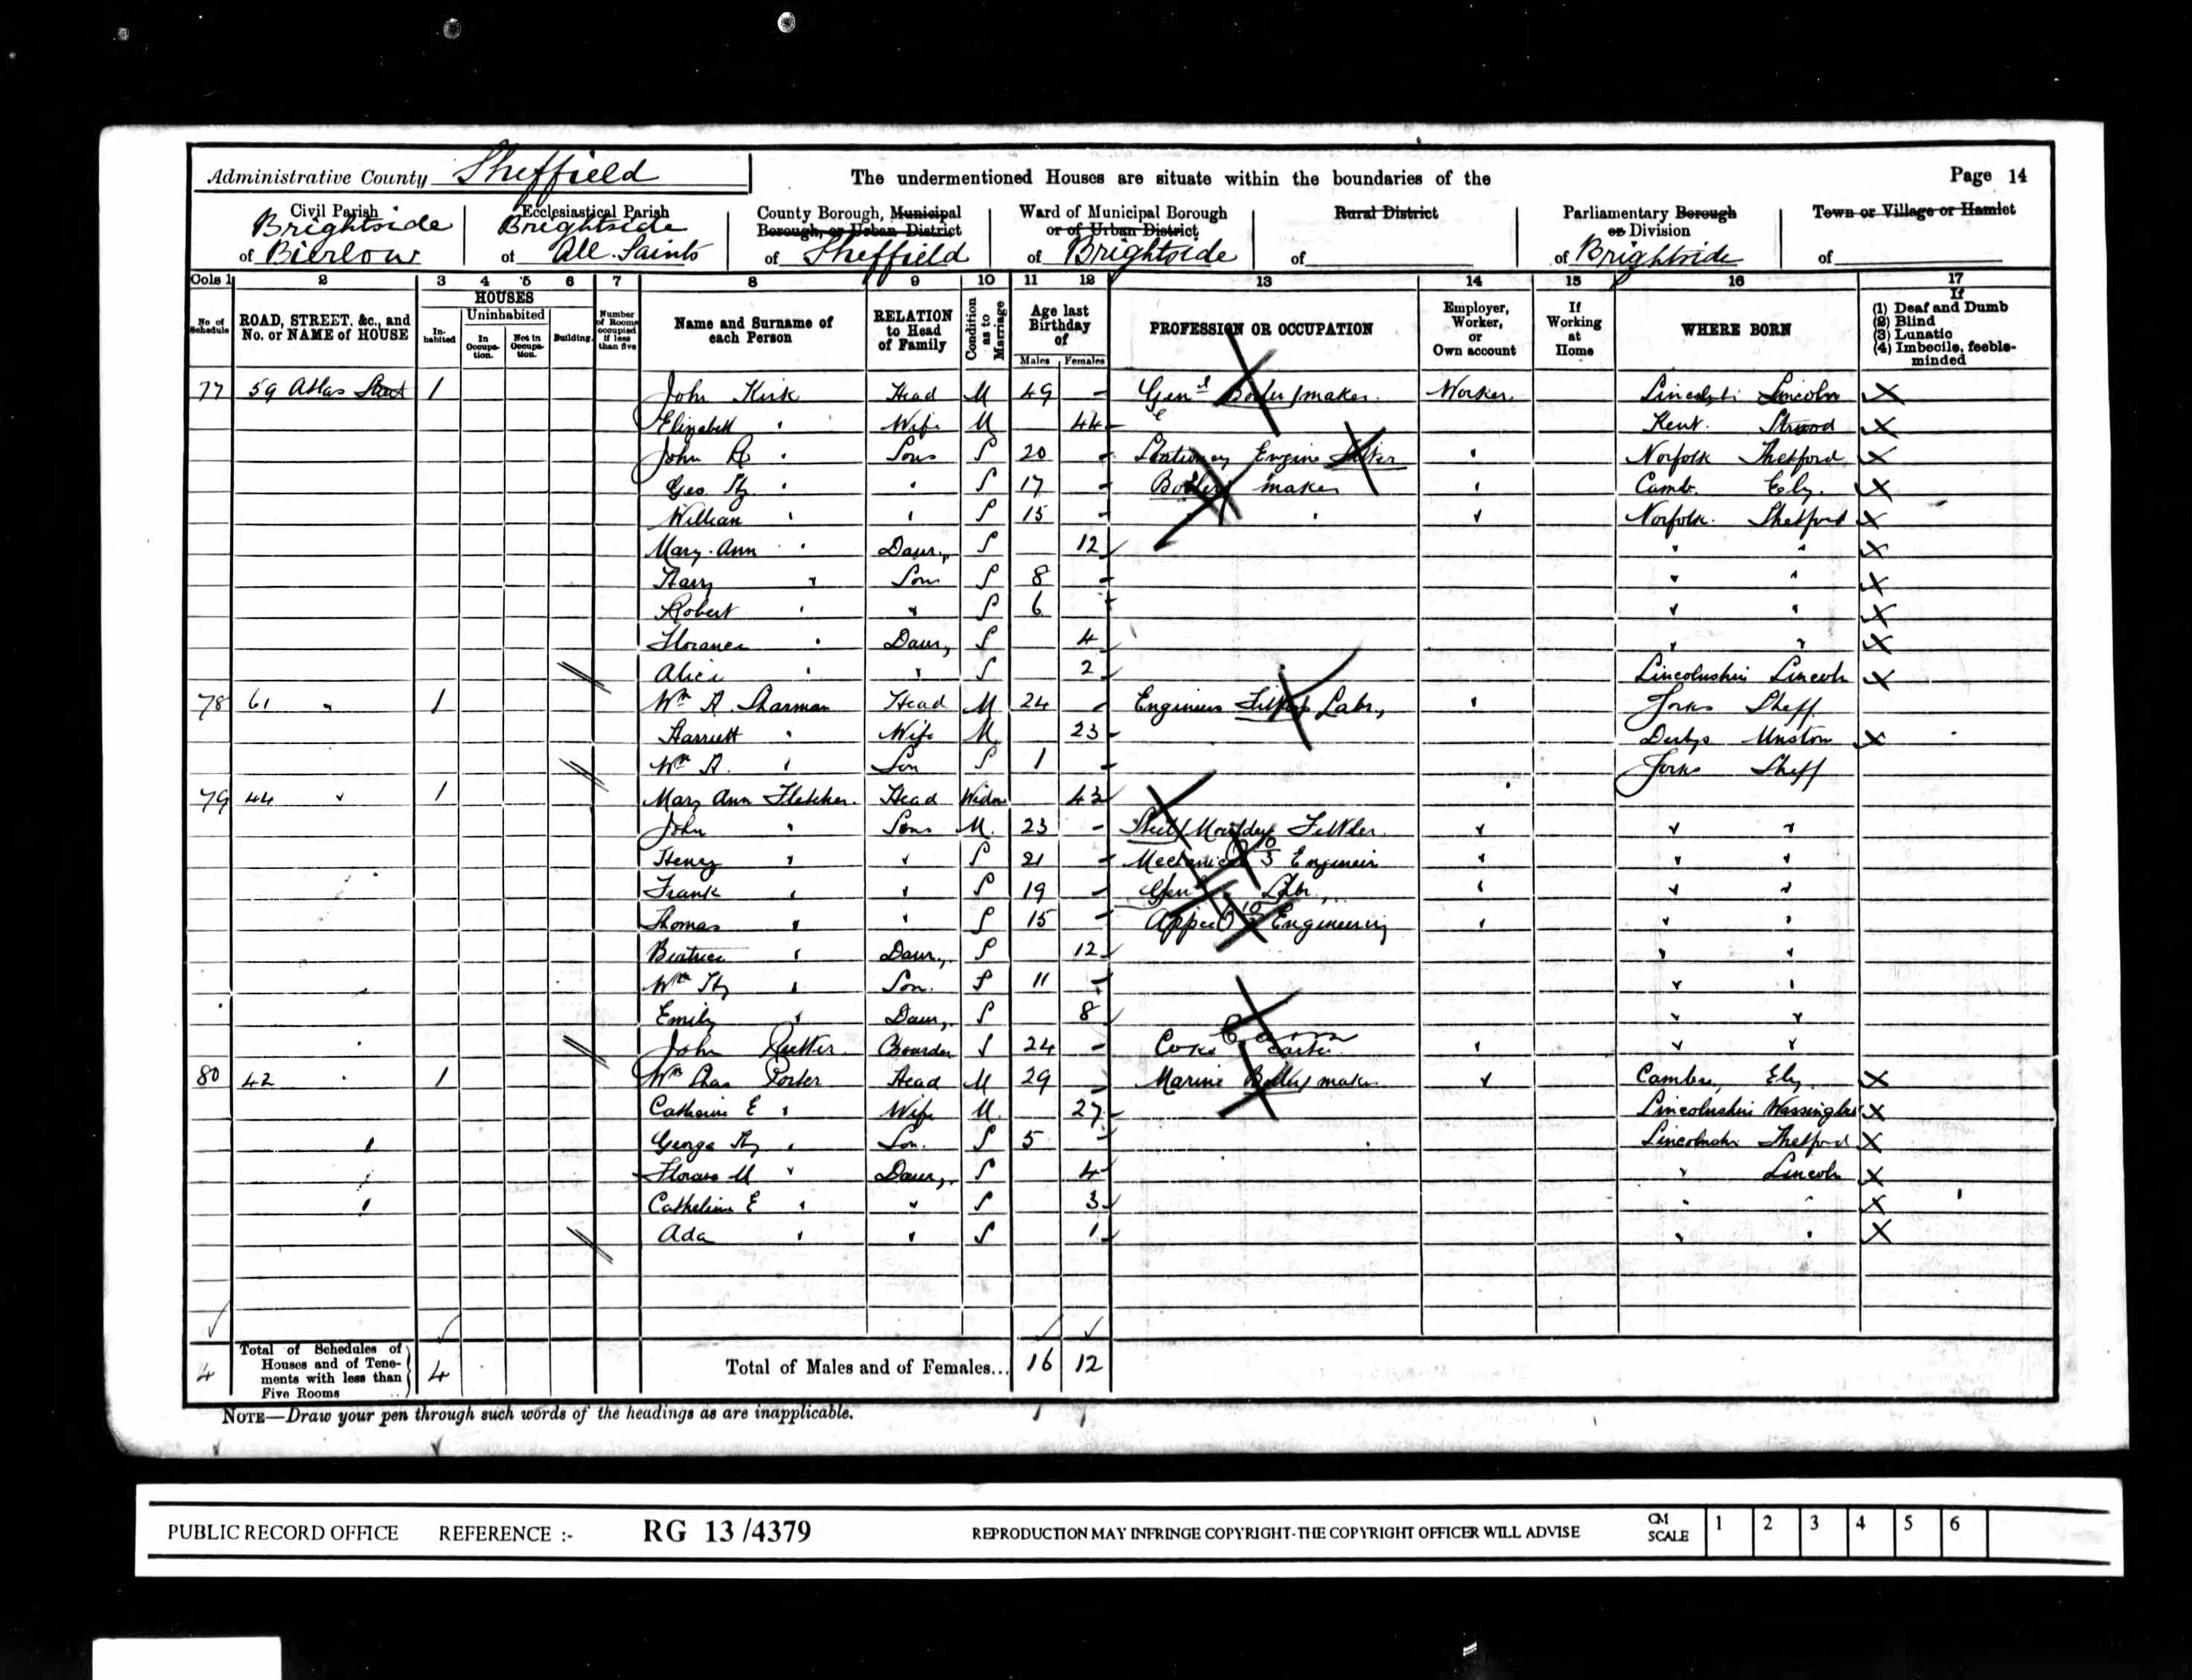 Administrative County Sheffield The undermentioned Houses are situate within the boundaries of the Page 14
Civil Parish of Brightside Bierlow
Ecclesiastical Parish of Brightside All Saints
County Borough, Municipal Borough, or Urban District of Sheffield
Ward of Municipal Borough or of Urban District of Brightside
Rural District of
Parliamentary Borough or Division of Brightside
Town or Village or Hamlet of
Cols 1 2 3 4 5 6 7 8 9 10 11 12 13 14 15 16 17
No of Schedule
ROAD, STREET, &c., and No. or NAME of HOUSE
HOUSES
Inhabited
Uninhabited
In Occupation.
Not in Occupation.
Building.
Number of Rooms occupied if less than five
Name and Surname of each Person
RELATION to Head of Family
Condition as to Marriage
Age last Birthday of
Males Females
PROFESSION OR OCCUPATION
Employer, Worker, or Own account
If Working at Home
WHERE BORN
If
(1) Deaf and Dumb
(2) Blind
(3) Lunatic
(4) Imbecile, feeble-minded
77 59 Atlas Street 1 John Kirk Head M 49 - Genl Boiler maker Worker Lincoln
Elizabeth " Wife M 44 Kent. Strood
John " Sons S 20 - Stationary Engine Fitter " Norfolk Thetford
Geo Hy " " S 17 - Boiler maker " Camb. Ely.
William " " S 15 - " " " Norfolk. Thetford
Mary Ann " Daur, S 12 " "
Harry " Son S 8 - " "
Robert " " S 6 " "
Florance " Daur, S 4 " "
Alice " " S 2 Lincolnshire Lincoln
78 61 " 1 Wm A. Sharman Head M 24 - Engineers Labr, " Yorks Sheff
Harriett " Wife M 23 Derbys Unston
Wm A. " Son S 1 - Yorks Sheff
79 44 " 1 Mary Ann Fletcher. Head Widow 43
John " Sons M. 23 - Steel Fettler. " " "
Henry " " S 21 - Mechanical Engineer " " "
Frank " " S 19 - Genl Labr, " " "
Thomas " " S 15 - Engineering " " "
Beatrice " Daur, S 12 " "
Wm Hy " Son. S 11 - " "
Emily " Daur, S 8 " "
John Rutter Boarder S 24 - Coke Carter " " "
80 42 " 1 Wm Chas Porter Head M 29 - Marine Boiler maker " Cambs, Ely.
Catherine E " Wife M. 27 Lincolnshire
George Hy " Son. S 5 - Lincolnshire Thetford
M " Daur, S 4 " Lincoln
E " " S 3 " "
Ada " " S 1 " "
4 Total of Schedules of Houses and of Tenements with less than Five Rooms 4 Total of Males and of Females... 16 12
NOTE—Draw your pen through such words of the headings as are inapplicable.
PUBLIC RECORD OFFICE REFERENCE :- RG 13/4379 REPRODUCTION MAY INFRINGE COPYRIGHT-THE COPYRIGHT OFFICER WILL ADVISE CM SCALE 1 2 3 4 5 6